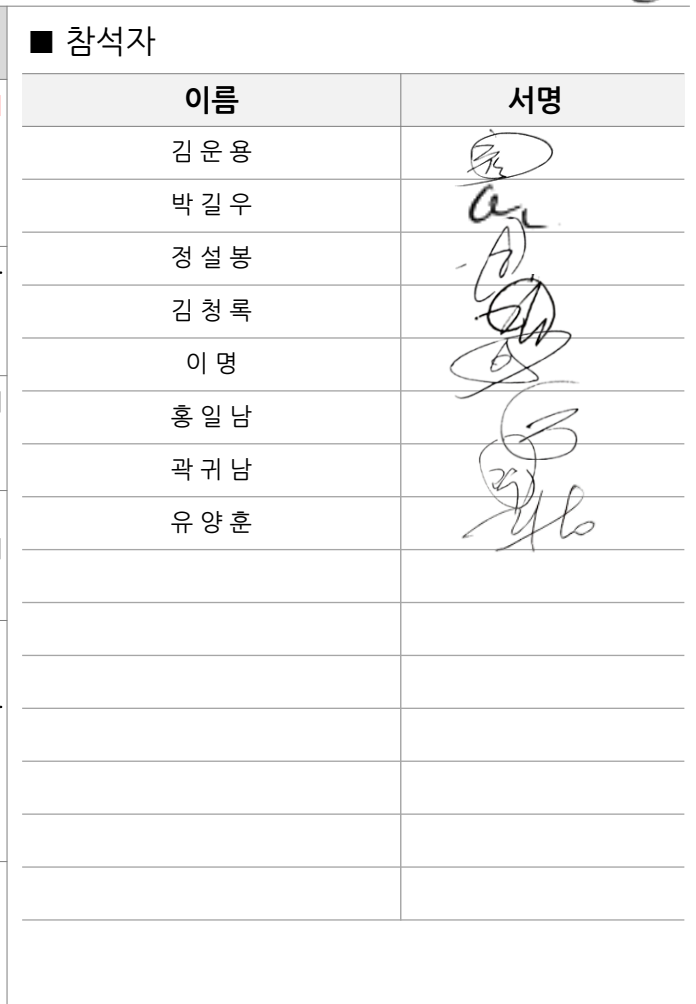 ■ 참석자
이름 서명
김 운 용
박 길 우
정 설 봉
김 청 록
이 명
홍 일 남
곽 귀 남
유 양 훈